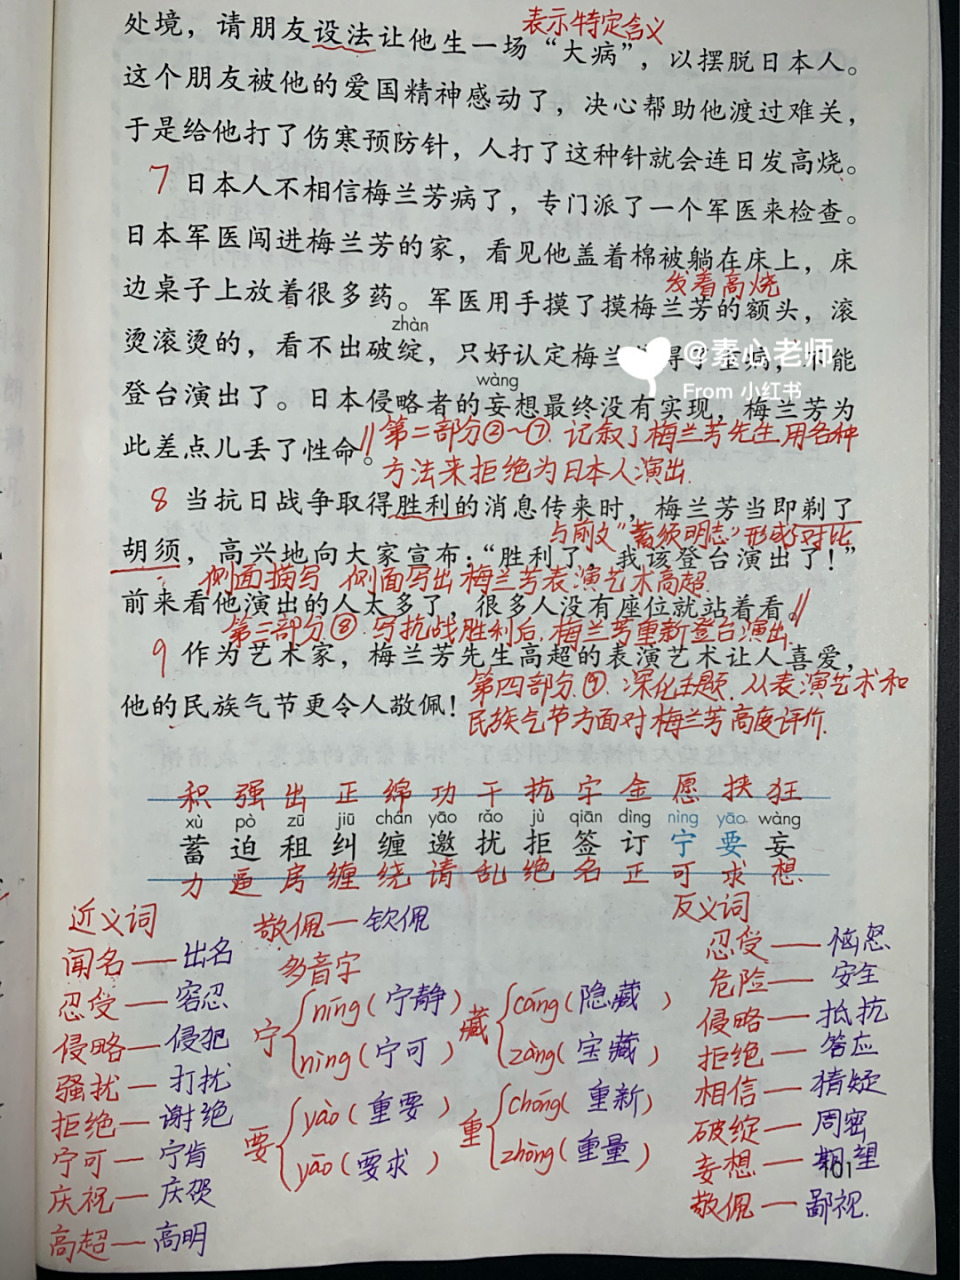 表示特定含义
处境，请朋友设法让他生一场“大病”，以摆脱日本人。
这个朋友被他的爱国精神感动了，决心帮助他渡过难关，
于是给他打了伤寒预防针，人打了这种针就会连日发高烧。
7 日本人不相信梅兰芳病了，专门派了一个军医来检查。
日本军医闯进梅兰芳的家，看见他盖着棉被躺在床上，床
发着高烧
边桌子上放着很多药。军医用手摸了摸梅兰芳的额头，滚
zhàn
烫滚烫的，看不出破绽，只好认定梅兰 得了重病，不能
@素心老师
From 小红书
wàng
登台演出了。日本侵略者的妄想最终没有实现，梅兰芳为
此差点儿丢了性命。
第二部分②～⑦.记叙了梅兰芳先生用各种
方法来拒绝为日本人演出.
8 当抗日战争取得胜利的消息传来时，梅兰芳当即剃了
与前文“蓄须明志”形成对比
胡须，高兴地向大家宣布：“胜利了，我该登台演出了！”
侧面描写 侧面写出梅兰芳表演艺术高超.
前来看他演出的人太多了，很多人没有座位就站着看。
第三部分⑧.写抗战胜利后,梅兰芳重新登台演出.
9 作为艺术家，梅兰芳先生高超的表演艺术让人喜爱，
他的民族气节更令人敬佩！
第四部分.⑨.深化主题.从表演艺术和
民族气节方面对梅兰芳高度评价.
积 强 出 正 绵 功 干 抗 字 金 愿 挟 狂
xù pò zū jiū chán yāo rǎo jù qiān dìng nìng yāo wàng
蓄 迫 租 纠 缠 邀 扰 拒 签 订 宁 要 妄
力 逼 房 缠 绕 请 乱 绝 名 正 可 求 想.
近义词
闻名—出名
忍受—容忍
侵略—侵犯
骚扰—打扰
拒绝—谢绝
宁可—宁肯
庆祝—庆贺
高超—高明
敬佩—钦佩
多音字
宁 níng(宁静) nìng(宁可)
藏 cáng(隐藏) zàng(宝藏)
要 yào(重要) yāo(要求)
重 chóng(重新) zhòng(重量)
反义词
忍受—恼怒
危险—安全
侵略—抵抗
拒绝—答应
相信—猜疑
破绽—周密
妄想—期望
敬佩—鄙视.
101